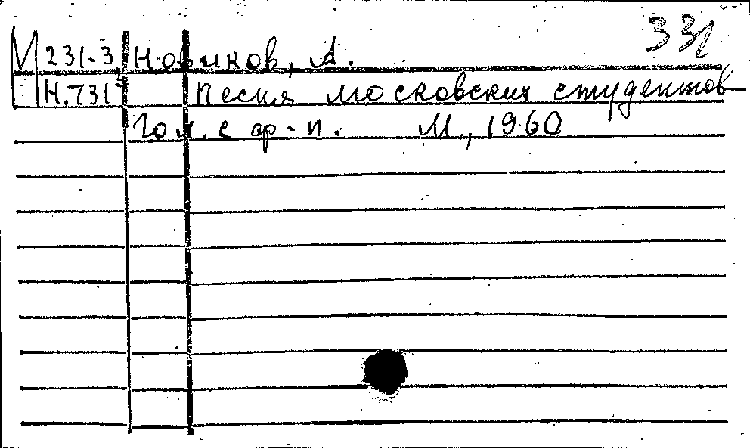 331
М 231-3 Новиков, А.
Н.731 Песня московских студентов
Гол. с ф-п. М., 1960